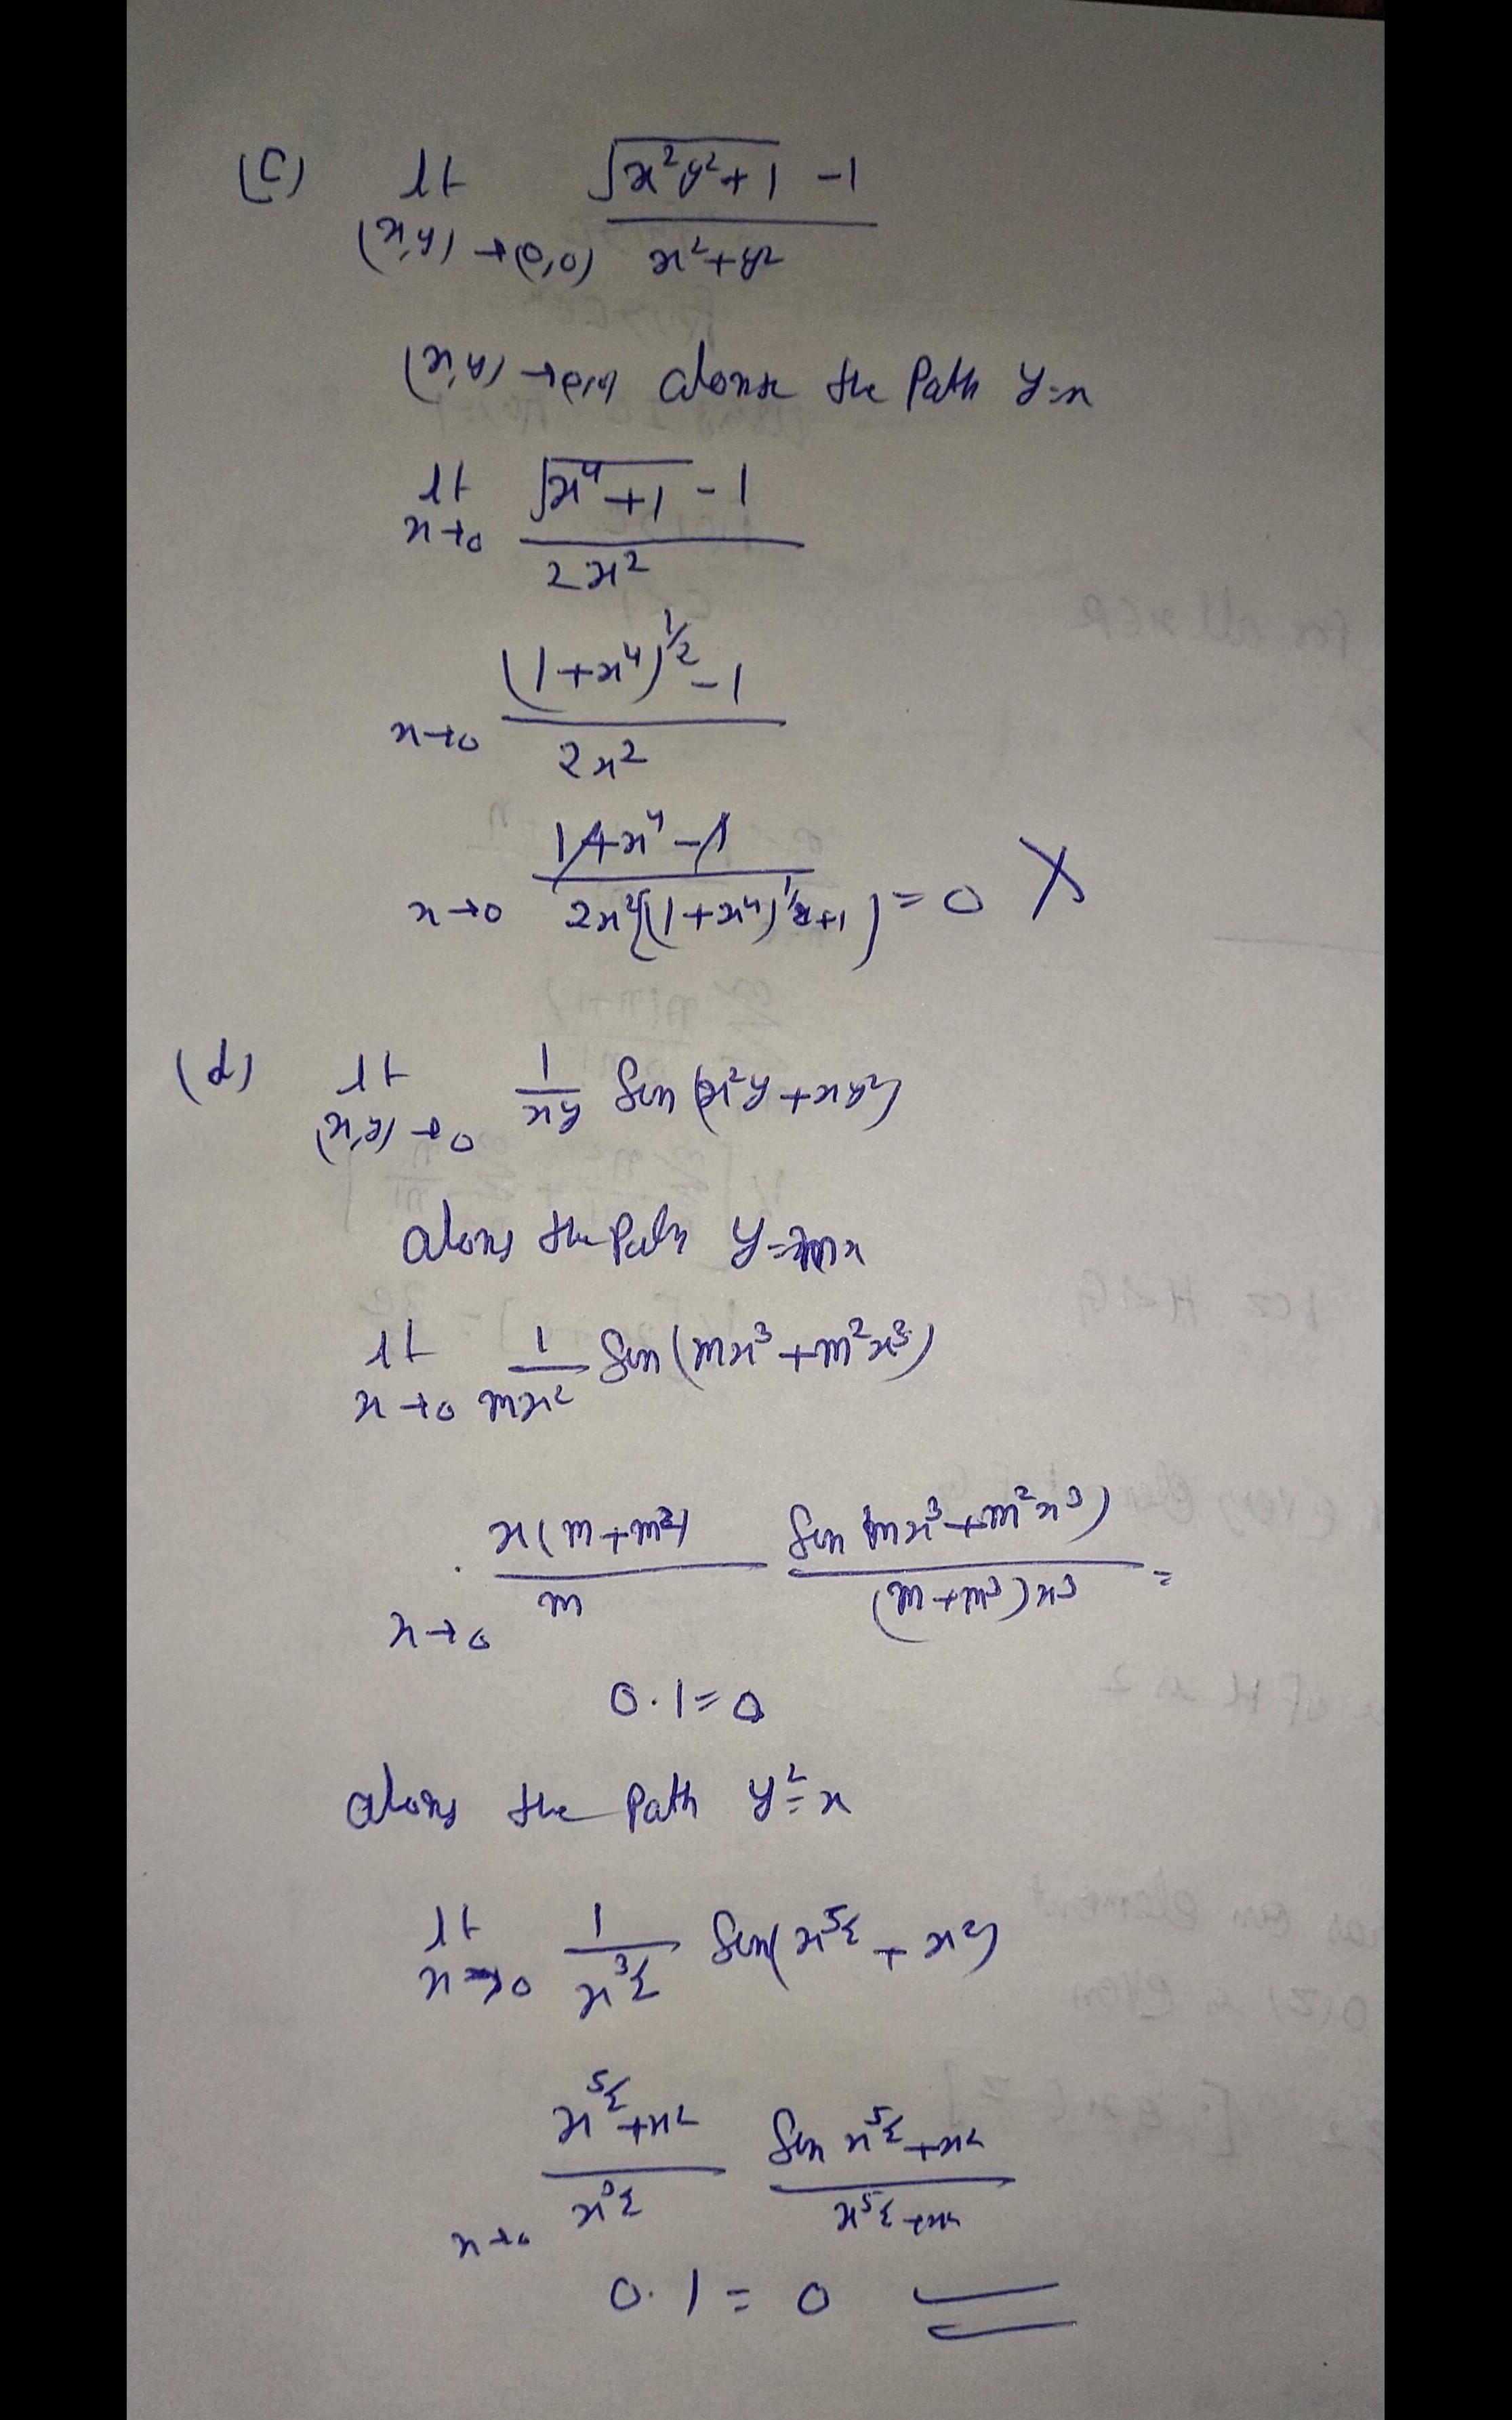 (c) lt √x²y²+1 -1
(x,y) → (0,0) x²+y²
(x,y) → (0,0) along the Path y=x
lt √x⁴+1 -1
x→0 2x²
(1+x⁴)^1/2 -1
x→0 2x²
1+x⁴-1
x→0 2x²{(1+x⁴)^1/2+1} = 0 X
(d) lt 1/xy Sin (x²y+xy²)
(x,y) → 0
along the Path y=mx
lt 1/mx² Sin (mx³+m²x³)
x→0
x(m+m²)/m Sin (mx³+m²x³)/(m+m²)x³ =
x→0
0.1=0
along the Path y²=x
lt 1/x^3/2 Sin(x^5/2 + x²)
x→0
x^5/2+x²/x^3/2 Sin x^5/2+x²/x^5/2+x²
x→0
0.1 = 0